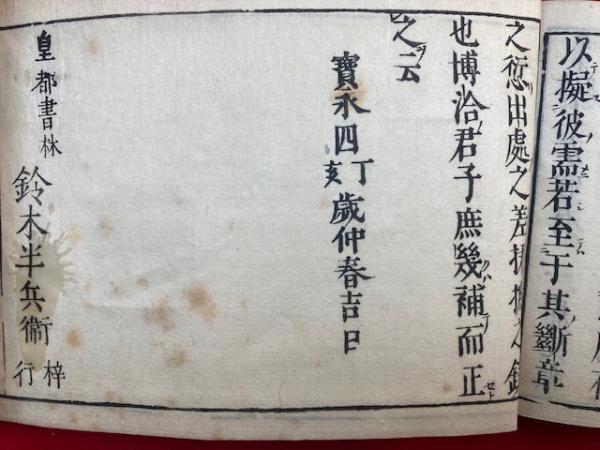 以擬彼需若至于其斷章
之愆出處之差
也博洽君子庶幾補而正
之云
寳永四丁亥歲仲春吉日
皇都書林 鈴木半兵衛 梓行